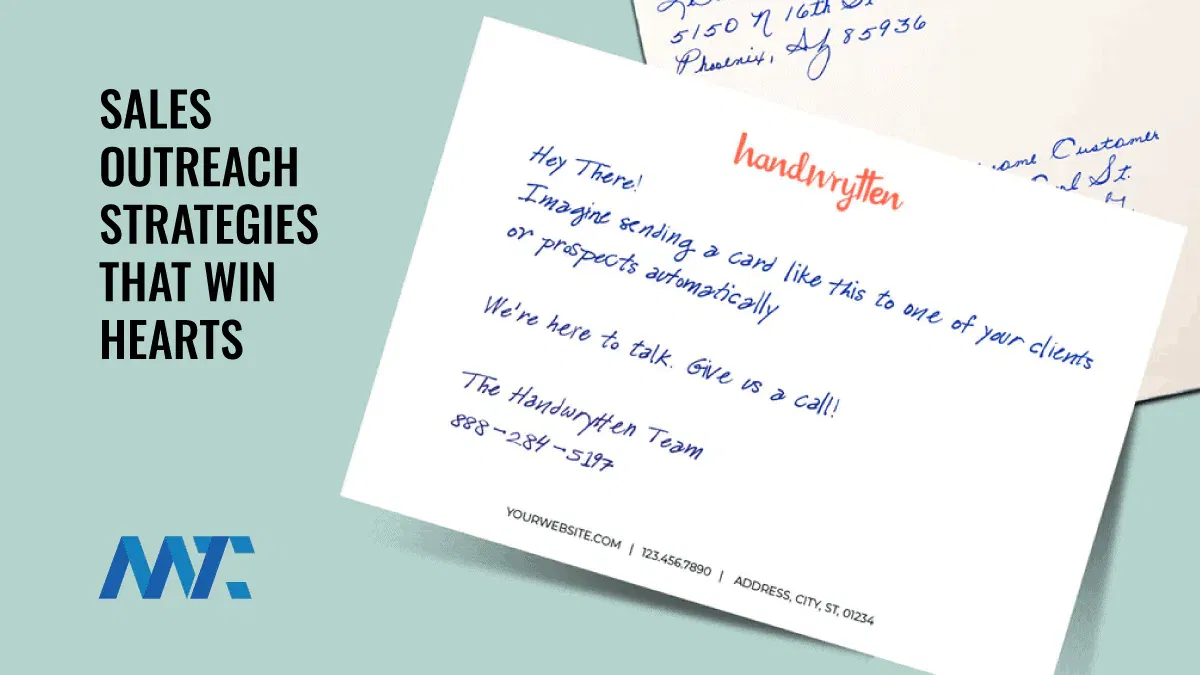 SALES
OUTREACH
STRATEGIES
THAT WIN
HEARTS
5150 N 16th
Phoenix, AZ 85936
Customer
St.
handwrytten
Hey There!
Imagine sending a card like this to one of your clients
or prospects automatically
We're here to talk. Give us a call!
The Handwrytten Team
888-284-5197
YOURWEBSITE.COM | 123.456.7890 | ADDRESS, CITY, ST, 01234